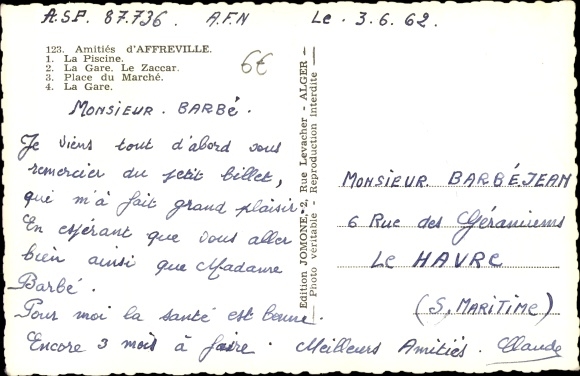 A.S.P. 87.736. A.F.N Le. 3.6.62.
123. Amitiés d'AFFREVILLE.
1. La Piscine.
2. La Gare. Le Zaccar.
3. Place du Marché.
4. La Gare.
6€
MONSIEUR. BARBÉ.
Je viens tout d'abord vous
remercier du petit billet,
qui m'à fait grand plaisir
En espérant que vous aller
bien ainsi que Madame
Barbé.
Pour moi la santé est bonne.
Encore 3 mois à faire. Meilleurs Amitiés. Claude
Edition JOMONE, 2, Rue Levacher - ALGER -
Photo véritable - Reproduction Interdite -
MONSIEUR. BARBÉJEAN
6 Rue des Géraniums
Le HAVRE
(S, MARITIME)